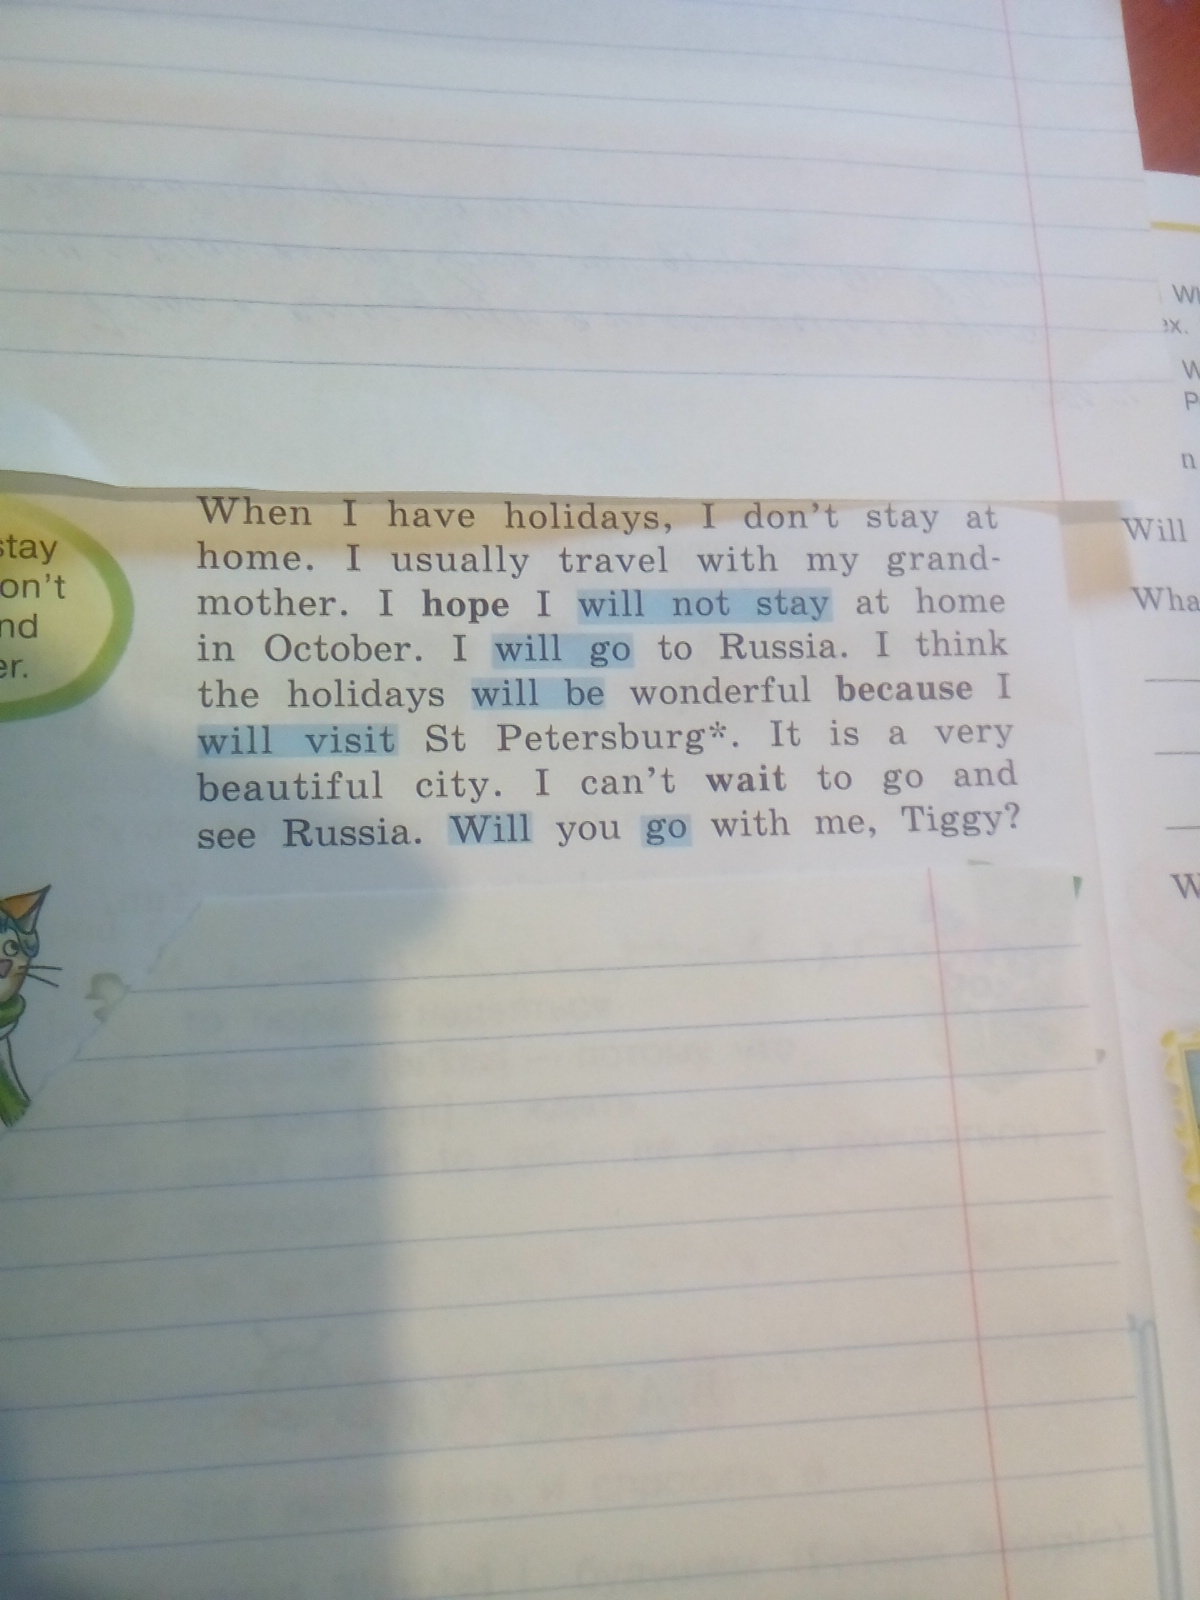 When I have holidays, I don't stay at
home. I usually travel with my grand-
mother. I hope I will not stay at home
in October. I will go to Russia. I think
the holidays will be wonderful because I
will visit St Petersburg*. It is a very
beautiful city. I can't wait to go and
see Russia. Will you go with me, Tiggy?
stay
Will